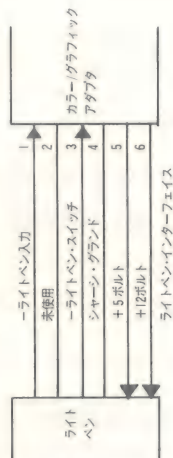 ライト
ペン
－ライトペン入力 1
未使用 2
－ライトペン・スイッチ 3
シャーシ・グランド 4
＋5ボルト 5
＋12ボルト 6
カラー/グラフィック
アダプタ
ライトペン・インターフェイス